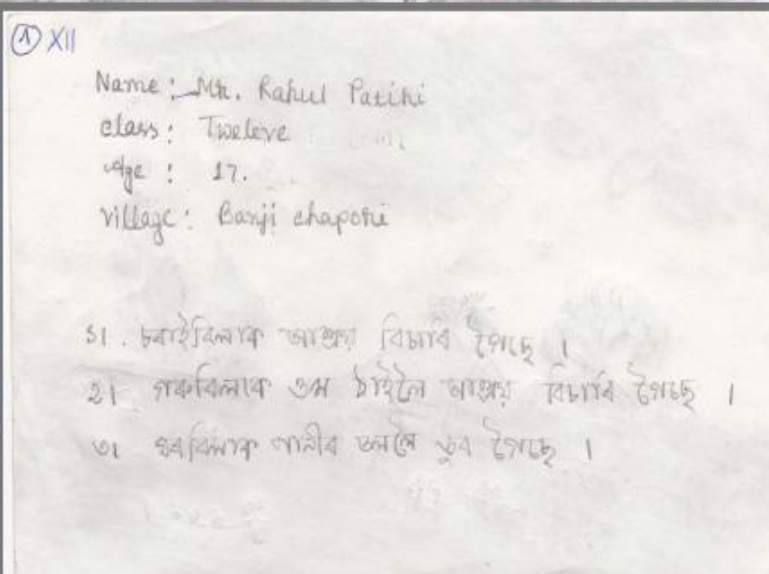 ① XII
Name : Mr. Rahul Patiri
class : Tweleve
Age : 17.
village : Banji chapori
১। চৰাইবিলাক আশ্ৰয় বিচাৰি গৈছে ।
২। গৰুবিলাকে ওখ ঠাইলৈ আশ্ৰয় বিচাৰি গৈছে ।
৩। ঘৰবিলাক পানীৰ তললৈ ডুব গৈছে ।